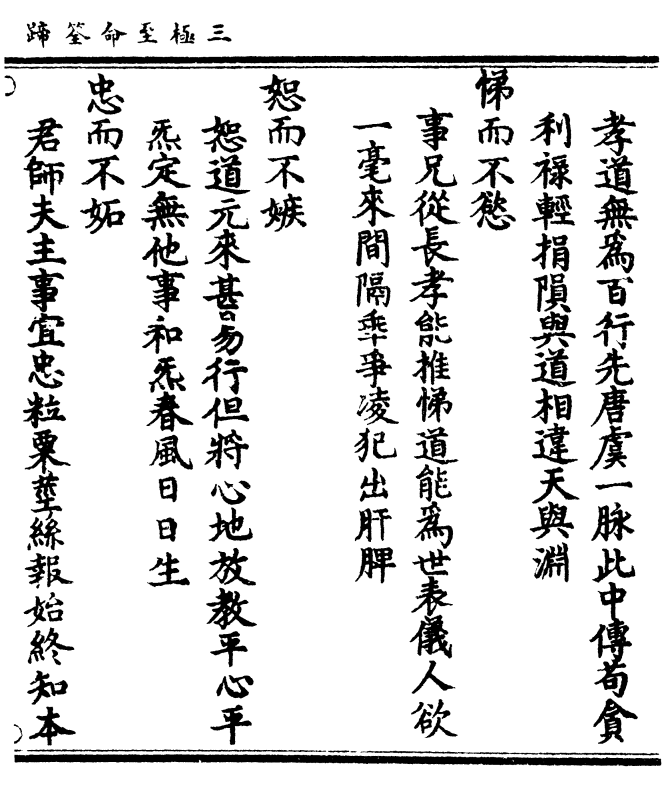 三極至命筌蹄
孝道無為百行先唐虞一脉此中傳苟貪
利祿輕捐隕與道相違天與淵
悌而不慾
事兄從長孝能推悌道能為世表儀人欲
一毫來間隔乖爭凌犯出肝脾
恕而不嫉
恕道元來甚易行但將心地放教平心平
炁定無他事和炁春風日日生
忠而不妬
君師夫主事宜忠粒粟莖絲報始終知本